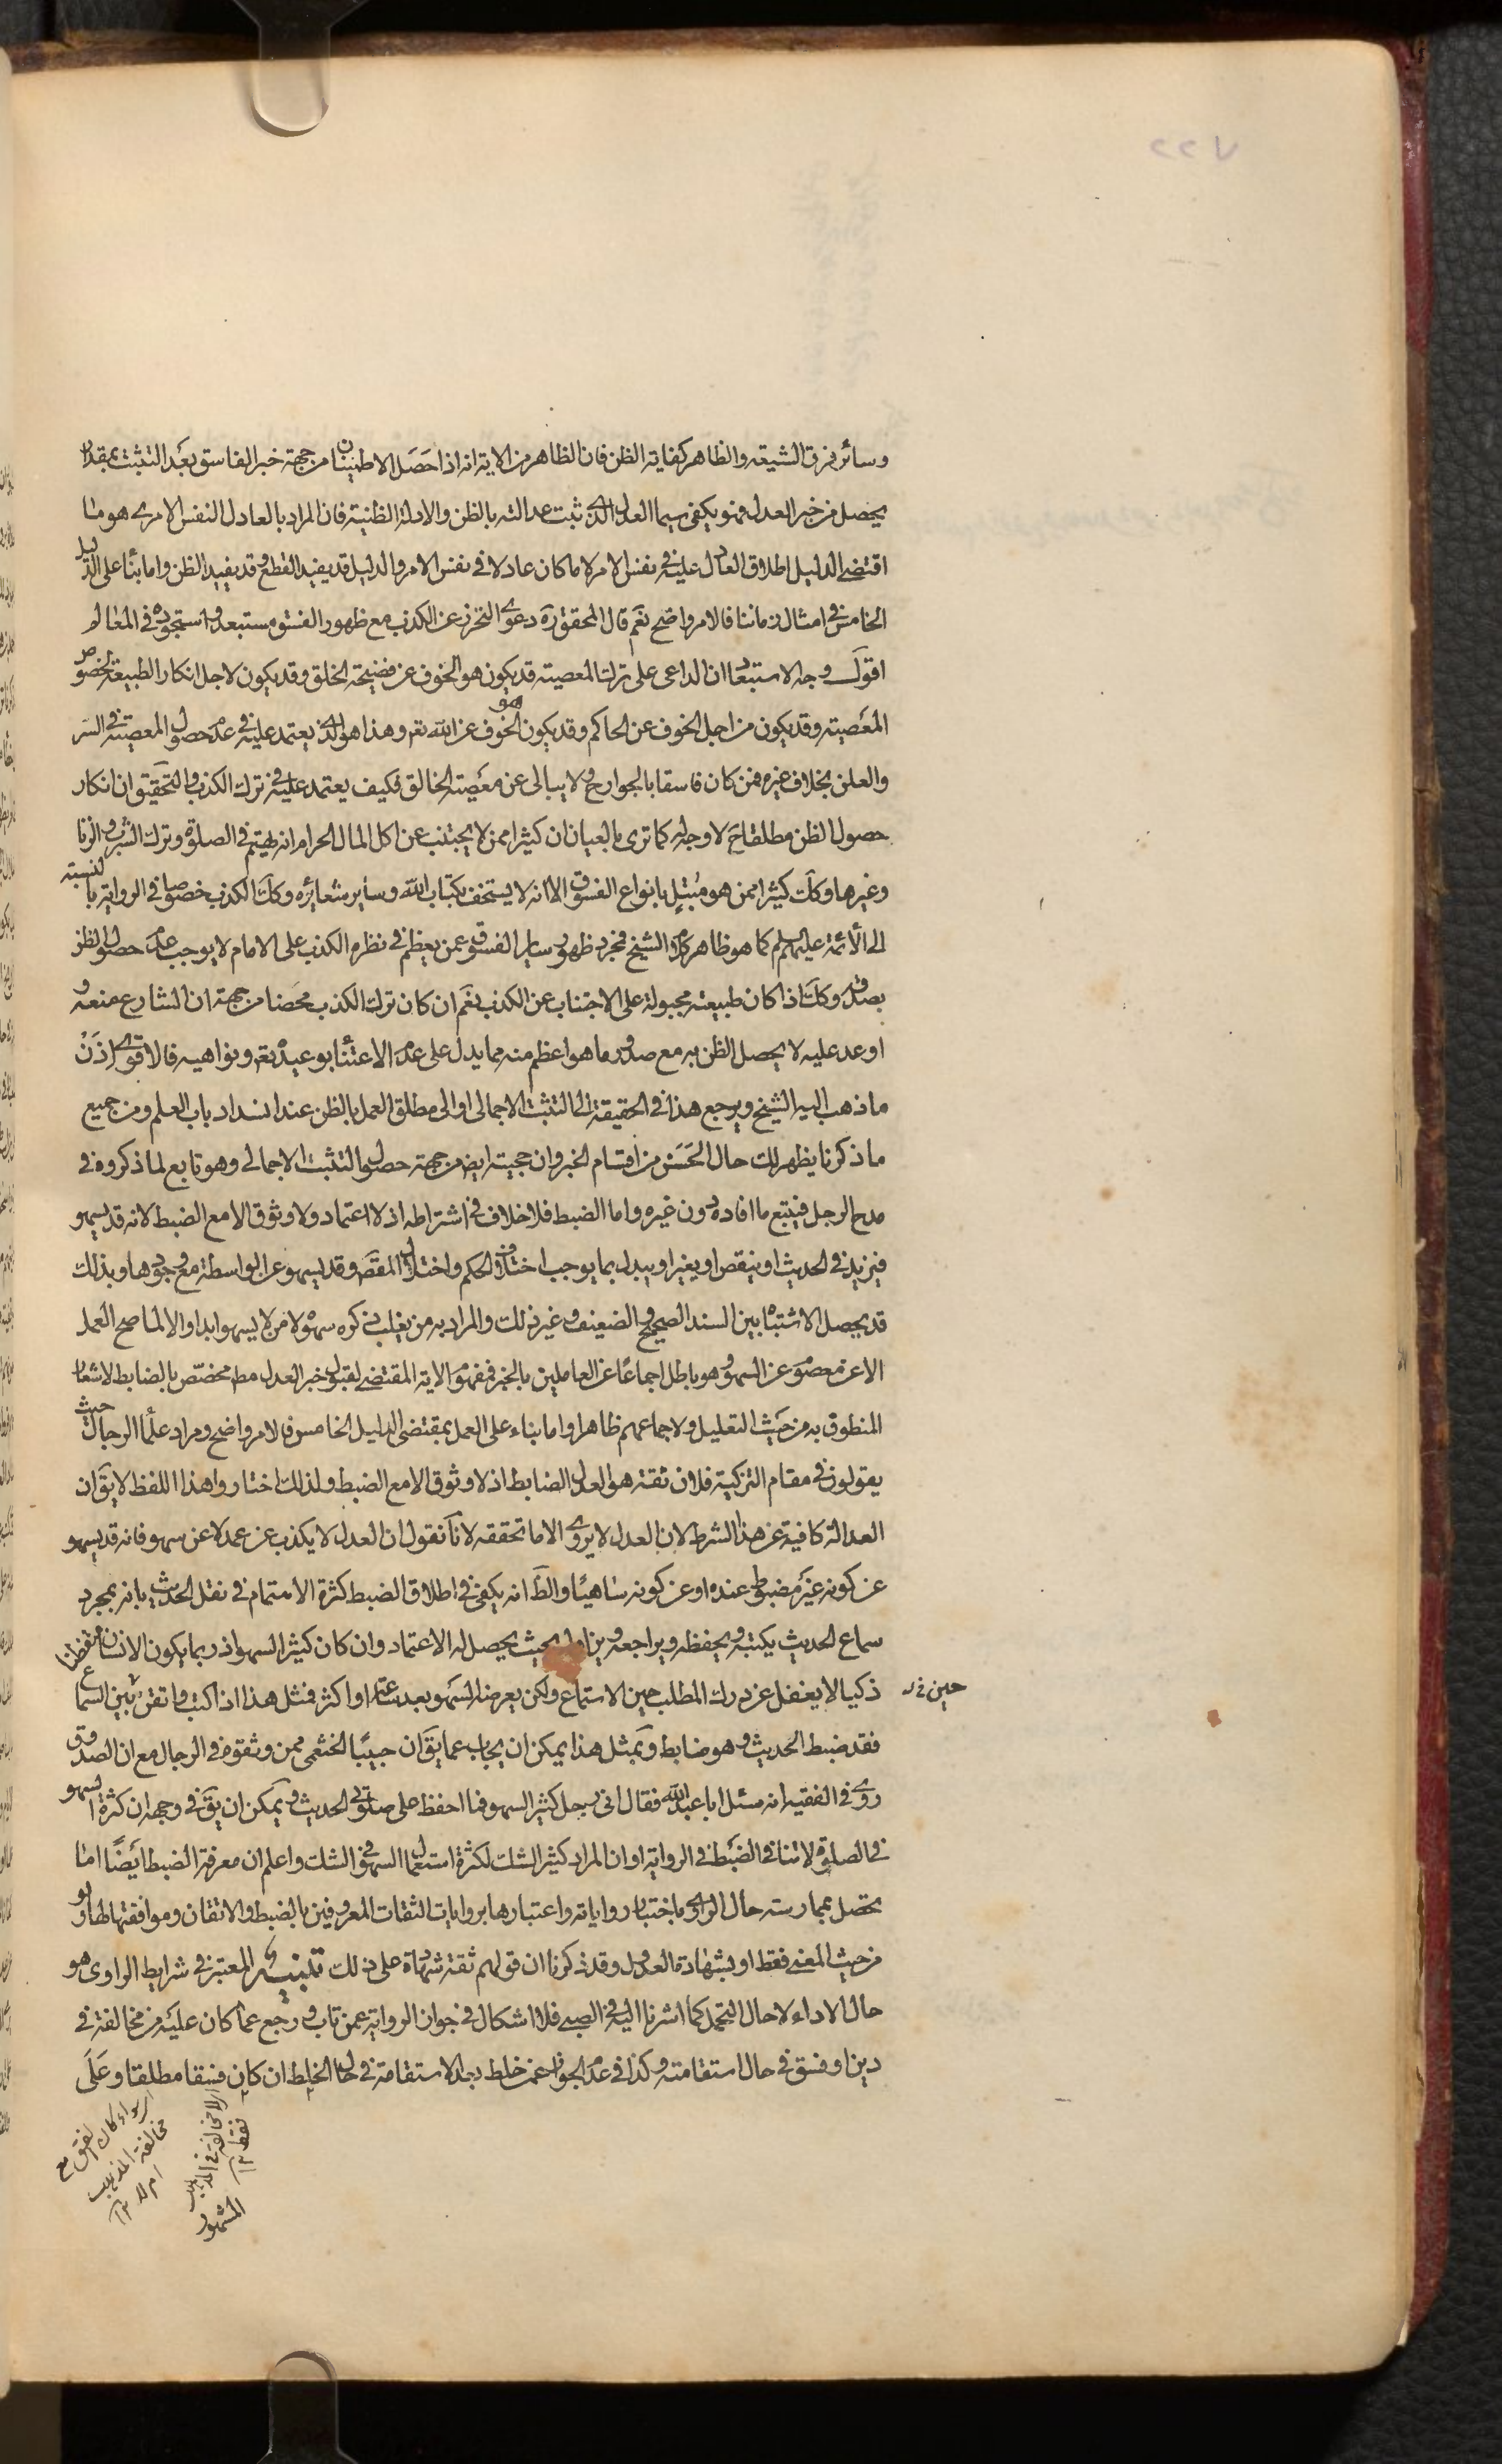 ٢٢٧
وسائر فرق الشيعه والظاهر كفاية الظن فان الظاهر من الاية انه اذا حصل الاطمينان من جهة خبر الفاسق بعد التثبت بمقدار
يحصل من خبر العدل فهو يكفى سيما العدل الذى ثبت عدالته بالظن والادلة الظنية فان المراد بالعادل النفس الامرى هو ما
اقتضى الدليل اطلاق العادل عليه فى نفس الامر لا ما كان عادلا فى نفس الامر والدليل قد يفيد القطع وقد يفيد الظن واما بناء على الدليل
الخامس فى امثال زماننا فالامر واضح نعم قال المحقق ره دعوى التحرز عن الكذب مع ظهور الفسق مستبعد واستجوده فى المعالم
اقول وجه الاستبعاد ان الداعى على ترك المعصية قد يكون هو الخوف عن فضيحة الخلق وقد يكون لاجل انكار الطبيعة لخصوص
المعصية وقد يكون من اجل الخوف عن الحاكم وقد يكون هو الخوف عن الله تعم وهذا هو الذى يعتمد عليه فى عدم حصول المعصية فى السر
والعلن بخلاف غيره فمن كان فاسقا بالجوارح ولا يبالى عن معصية الخالق فكيف يعتمد عليه فى ترك الكذب والتحقيق ان انكار
حصول الظن مطلقا ح لا وجه له كما ترى بالعيان ان كثيرا ممن لا يجتنب عن اكل المال الحرام انه يهتم فى الصلوة وترك الشرب والزنا
وغيرها وكك كثيرا ممن هو مبتل بانواع الفسوق الا انه لا يستخف بكتاب الله وساير شعائره وكك الكذب خصوصا فى الرواية بالنسبة
الى الأئمة عليهم السلم كما هو ظاهر كلام الشيخ فمجرد ظهور ساير الفسوق عمن يعظم فى نظره الكذب على الامام لا يوجب عدم حصول الظن
بصدقه وكك اذا كان طبيعته مجبولة على الاجتناب عن الكذب نعم ان كان ترك الكذب محضا من جهة ان الشارع منعه و
اوعد عليه لا يحصل الظن به مع صدور ما هو اعظم منه مما يدل على عدم الاعتناء بوعيده تعم ونواهيه فالاقوى اذن
ما ذهب اليه الشيخ ويرجع هذا فى الحقيقة الى التثبت الاجمالى او الى مطلق العمل بالظن عند انسداد باب العلم ومن جميع
ما ذكرنا يظهر لك حال الحسن من اقسام الخبر وان حجيته ايض من جهة حصول التثبت الاجمالى وهو تابع لما ذكروه فى
مدح الرجل فيتبع ما افاده دون غيره واما الضبط فلا خلاف فى اشتراطه اذ لا اعتماد ولا وثوق الا مع الضبط لانه قد يسهو
فيزيد فى الحديث او ينقص او يغير او يبدل بما يوجب اختلاف الحكم واختلال المقصد وقد يسهو عن الواسطة مع وجودها وبذلك
قد يحصل الاشتباه بين السند الصحيح والضعيف وغير ذلك والمراد به من يغلب ذكره سهوه لا من لا يسهو ابدا والا لما صح العمل
الا عن معصوم عن السهو وهو باطل اجماعا عن العاملين بالخبر فمفهوم الاية المقتضى لقبول خبر العدل مط مخصص بالضابط لاشعار
المنطوق به من حيث التعليل ولاجماعهم ظاهرا واما بناء على العمل بمقتضى الدليل الخامس فالامر واضح ومراد علماء الرجال حيث
يقولون فى مقام التزكية فلان ثقة هو العدل الضابط اذ لا وثوق الا مع الضبط ولذلك اختاروا هذا اللفظ لا يق ان
العدالة كافية عن هذا الشرط لان العدل لا يروى الا ما تحققه لانا نقول ان العدل لا يكذب عن عمد لا عن سهو فانه قد يسهو
عن كونه غير مضبوط عنده او عن كونه ساهيا والظ انه يكفى فى اطلاق الضبط كثرة الاهتمام فى نقل الحديث بانه بمجرد
سماع الحديث يكتبه ويحفظه ويراجعه ويزاوله بحيث يحصل له الاعتماد وان كان كثير السهو اذ ربما يكون الانسان متفطنا
ذكيا لا يغفل عن درك المطلب حين الاستماع ولكن يعرضه السهو بعد ساعة او اكثر فمثل هذا اذا كتب واتقن حين السماع
حين
فقد ضبط الحديث وهو ضابط وبمثل هذا يمكن ان يجاب عما يق ان حبيبا الخثعمى ممن وثقوه فى الرجال مع ان الصدوق
روى فى الفقيه انه سئل ابا عبد الله فقال انى رجل كثير السهو فما احفظ على صلوتى الحديث ويمكن ان يق فى وجهه ان كثرة السهو
فى الصلوة لا تنافى الضبط فى الرواية او ان المراد كثير الشك لكثرة استعمال السهو فى الشك واعلم ان معرفة الضبط ايضا اما
يحصل بممارسة حال الراوى باختبار رواياته واعتبارها بروايات الثقات المعروفين بالضبط والاتقان وموافقتها لها ولو
من حيث المعنى فقط او بشهادة العدول وقد ذكرنا ان قولهم ثقة شهادة على ذلك تنبيه المعتبر فى شرايط الراوى هو
حال الاداء لا حال التحمل كما اشرنا اليه فى الصبى فلا اشكال فى جواز الرواية عمن تاب ورجع عما كان عليه من مخالفة فى
دين او فسق فى حال استقامته وكذا فى عدم الجواز عمن خلط بعد الاستقامة فى حال الخلط ان كان فسقا مطلقا وعلى
سواء كان الفسق مع
مخالفة المذهب
ام لا ١٢
الا مخالفة فى المذهب
فقط ١٢
المشهور